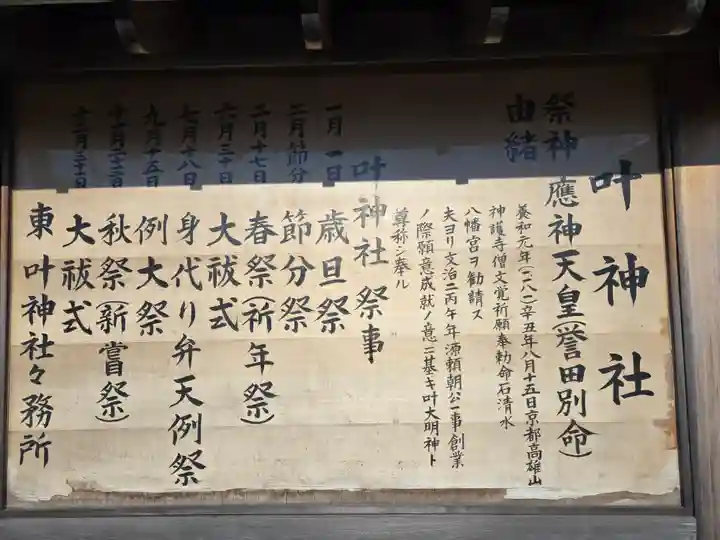 叶神社
祭神 應神天皇(誉田別命)
由緒
養和元年(一一八一)辛丑年八月十五日京都高雄山
神護寺僧文覚祈願奉勅命石清水
八幡宮ヲ勧請ス
夫ヨリ文治二丙午年源頼朝公一事創業
ノ際願意成就ノ意ニ基キ叶大明神ト
尊称シ奉ル
叶神社祭事
一月一日 歳旦祭
二月節分 節分祭
二月十七日 春祭(祈年祭)
六月三十日 大祓式
七月十八日 身代り弁天例祭
九月十五日 例大祭
十一月二十三日 秋祭(新嘗祭)
十二月三十日 大祓式
東叶神社々務所